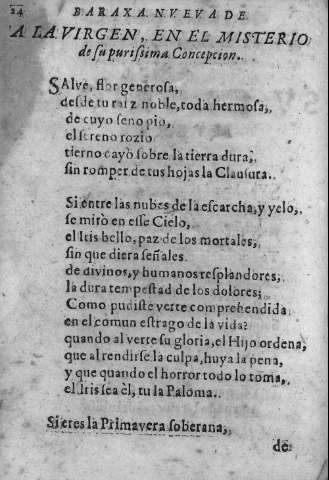 24
BARAXA NVEVA DE
A LA VIRGEN, EN EL MISTERIO
de su purissima Concepcion.
SAlve, flor generosa,
desde tu raiz noble, toda hermosa,
de cuyo seno pio,
el sereno rozio
tierno cayò sobre la tierra dura,
sin romper de tus hojas la Clausura.
Si entre las nubes de la escarcha, y yelo,
se mirò en esse Cielo,
el Iris bello, paz de los mortales,
sin que diera señales
de divinos, y humanos resplandores,
la dura tempestad de los dolores;
Como pudiste verte comprehendida
en el comun estrago de la vida?
quando al verte su gloria, el Hijo ordena,
que al rendirse la culpa, huya la pena,
y que quando el horror todo lo toma,
el Iris sea èl, tu la Paloma.
Si eres la Primavera soberana,
de